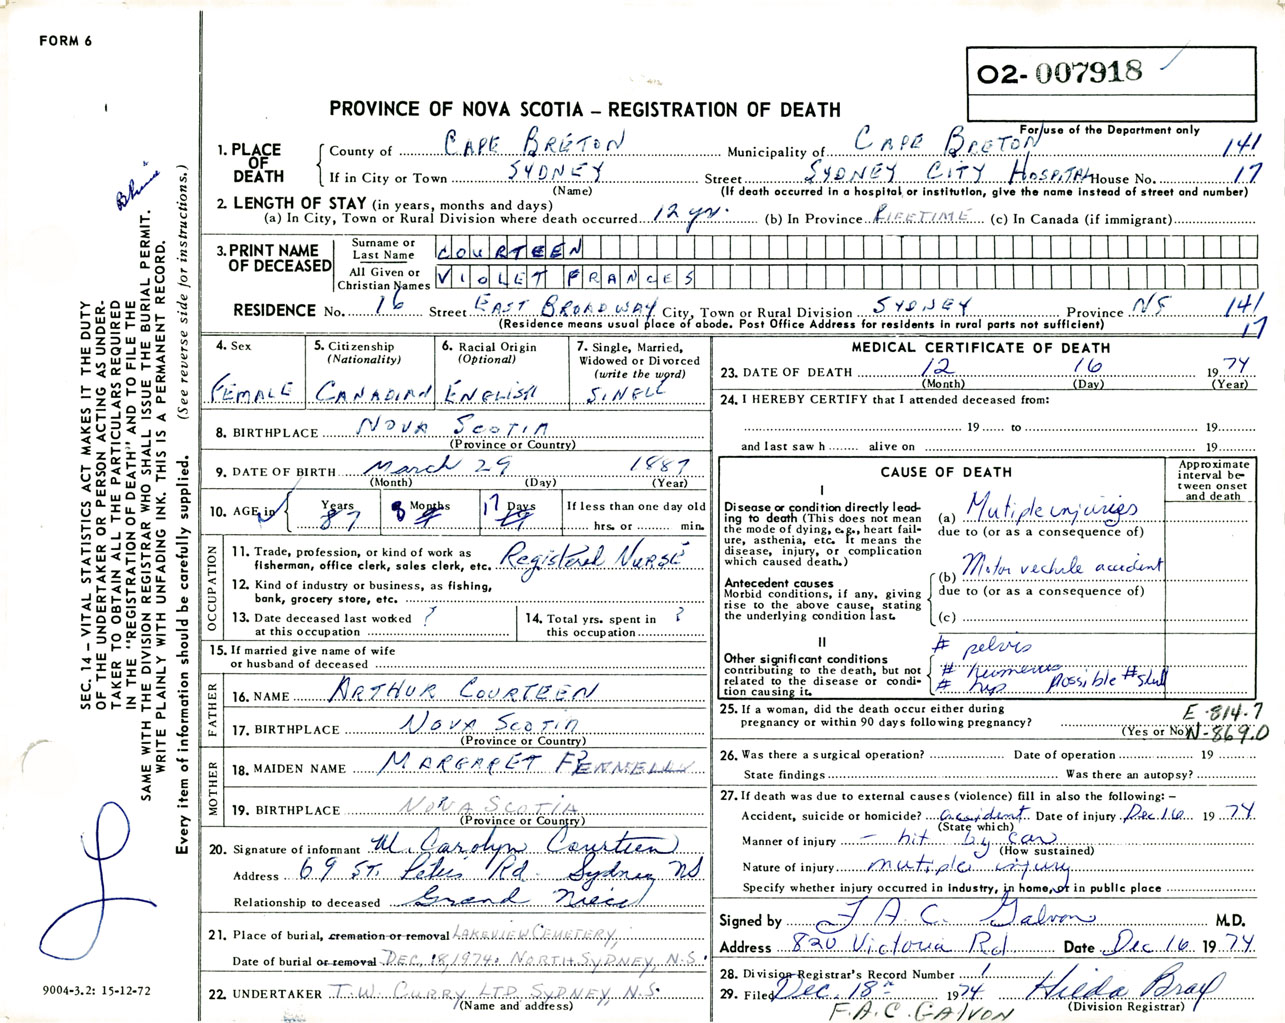 FORM 6
O2-007918
PROVINCE OF NOVA SCOTIA – REGISTRATION OF DEATH
For use of the Department only
1. PLACE OF DEATH
County of CAPE BRETON Municipality of CAPE BRETON 141
If in City or Town SYDNEY Street SYDNEY CITY HOSPITAL House No. 17
(Name) (If death occurred in a hospital or institution, give the name instead of street and number)
2. LENGTH OF STAY (in years, months and days)
(a) In City, Town or Rural Division where death occurred 12 yr. (b) In Province LIFETIME (c) In Canada (if immigrant)
3. PRINT NAME OF DECEASED
Surname or Last Name COURTEEN
All Given or Christian Names VIOLET FRANCES
RESIDENCE No. 16 Street EAST BROADWAY City, Town or Rural Division SYDNEY Province NS 141
(Residence means usual place of abode. Post Office Address for residents in rural parts not sufficient) 17
4. Sex FEMALE
5. Citizenship (Nationality) CANADIAN
6. Racial Origin (Optional) ENGLISH
7. Single, Married, Widowed or Divorced (write the word) SINGLE
8. BIRTHPLACE NOVA SCOTIA
(Province or Country)
9. DATE OF BIRTH March 29 1887
(Month) (Day) (Year)
10. AGE in Years 87 Months 8 Days 17 If less than one day old hrs. or min.
OCCUPATION
11. Trade, profession, or kind of work as fisherman, office clerk, sales clerk, etc. Registered Nurse
12. Kind of industry or business, as fishing, bank, grocery store, etc.
13. Date deceased last worked at this occupation ?
14. Total yrs. spent in this occupation ?
15. If married give name of wife or husband of deceased
FATHER
16. NAME ARTHUR COURTEEN
17. BIRTHPLACE NOVA SCOTIA
(Province or Country)
MOTHER
18. MAIDEN NAME MARGARET
19. BIRTHPLACE NOVA SCOTIA
(Province or Country)
20. Signature of informant M. Carolyn Courteen
Address 69 St. Peters Rd. Sydney NS
Relationship to deceased Grand Niece
21. Place of burial, cremation or removal LAKEVIEW CEMETERY,
Date of burial or removal DEC. 18, 1974. NORTH SYDNEY, N.S.
22. UNDERTAKER T.W. CURRY LTD SYDNEY, N.S.
(Name and address)
MEDICAL CERTIFICATE OF DEATH
23. DATE OF DEATH 12 16 1974
(Month) (Day) (Year)
24. I HEREBY CERTIFY that I attended deceased from:
19 to 19
and last saw h alive on 19
CAUSE OF DEATH
Approximate interval between onset and death
I
Disease or condition directly leading to death (This does not mean the mode of dying, e.g., heart failure, asthenia, etc. It means the disease, injury, or complication which caused death.)
(a) Mutiple injuries
due to (or as a consequence of)
Antecedent causes
Morbid conditions, if any, giving rise to the above cause, stating the underlying condition last.
(b) Motor vechile accident
due to (or as a consequence of)
(c)
II
Other significant conditions contributing to the death, but not related to the disease or condition causing it.
# pelvis
# humerus
# hip possible # skull
25. If a woman, did the death occur either during pregnancy or within 90 days following pregnancy?
(Yes or No)
E-814.7
N-869.0
26. Was there a surgical operation? Date of operation 19
State findings Was there an autopsy?
27. If death was due to external causes (violence) fill in also the following: –
Accident, suicide or homicide? accident Date of injury Dec 16 1974
(State which)
Manner of injury – hit by car
(How sustained)
Nature of injury mutiple injury
Specify whether injury occurred in industry, in home, or in public place
Signed by F. A. C. Galvon M.D.
Address 820 Victoria Rd Date Dec 16 1974
28. Division Registrar's Record Number 1
29. Filed Dec. 18th 1974 Hilda Bray
(Division Registrar)
F.A.C. GALVON
SEC. 14 – VITAL STATISTICS ACT MAKES IT THE DUTY
OF THE UNDERTAKER OR PERSON ACTING AS UNDER-
TAKER TO OBTAIN ALL THE PARTICULARS REQUIRED
IN THE "REGISTRATION OF DEATH" AND TO FILE THE
SAME WITH THE DIVISION REGISTRAR WHO SHALL ISSUE THE BURIAL PERMIT.
WRITE PLAINLY WITH UNFADING INK. THIS IS A PERMANENT RECORD.
Every item of information should be carefully supplied. (See reverse side for instructions.)
9004-3.2: 15-12-72